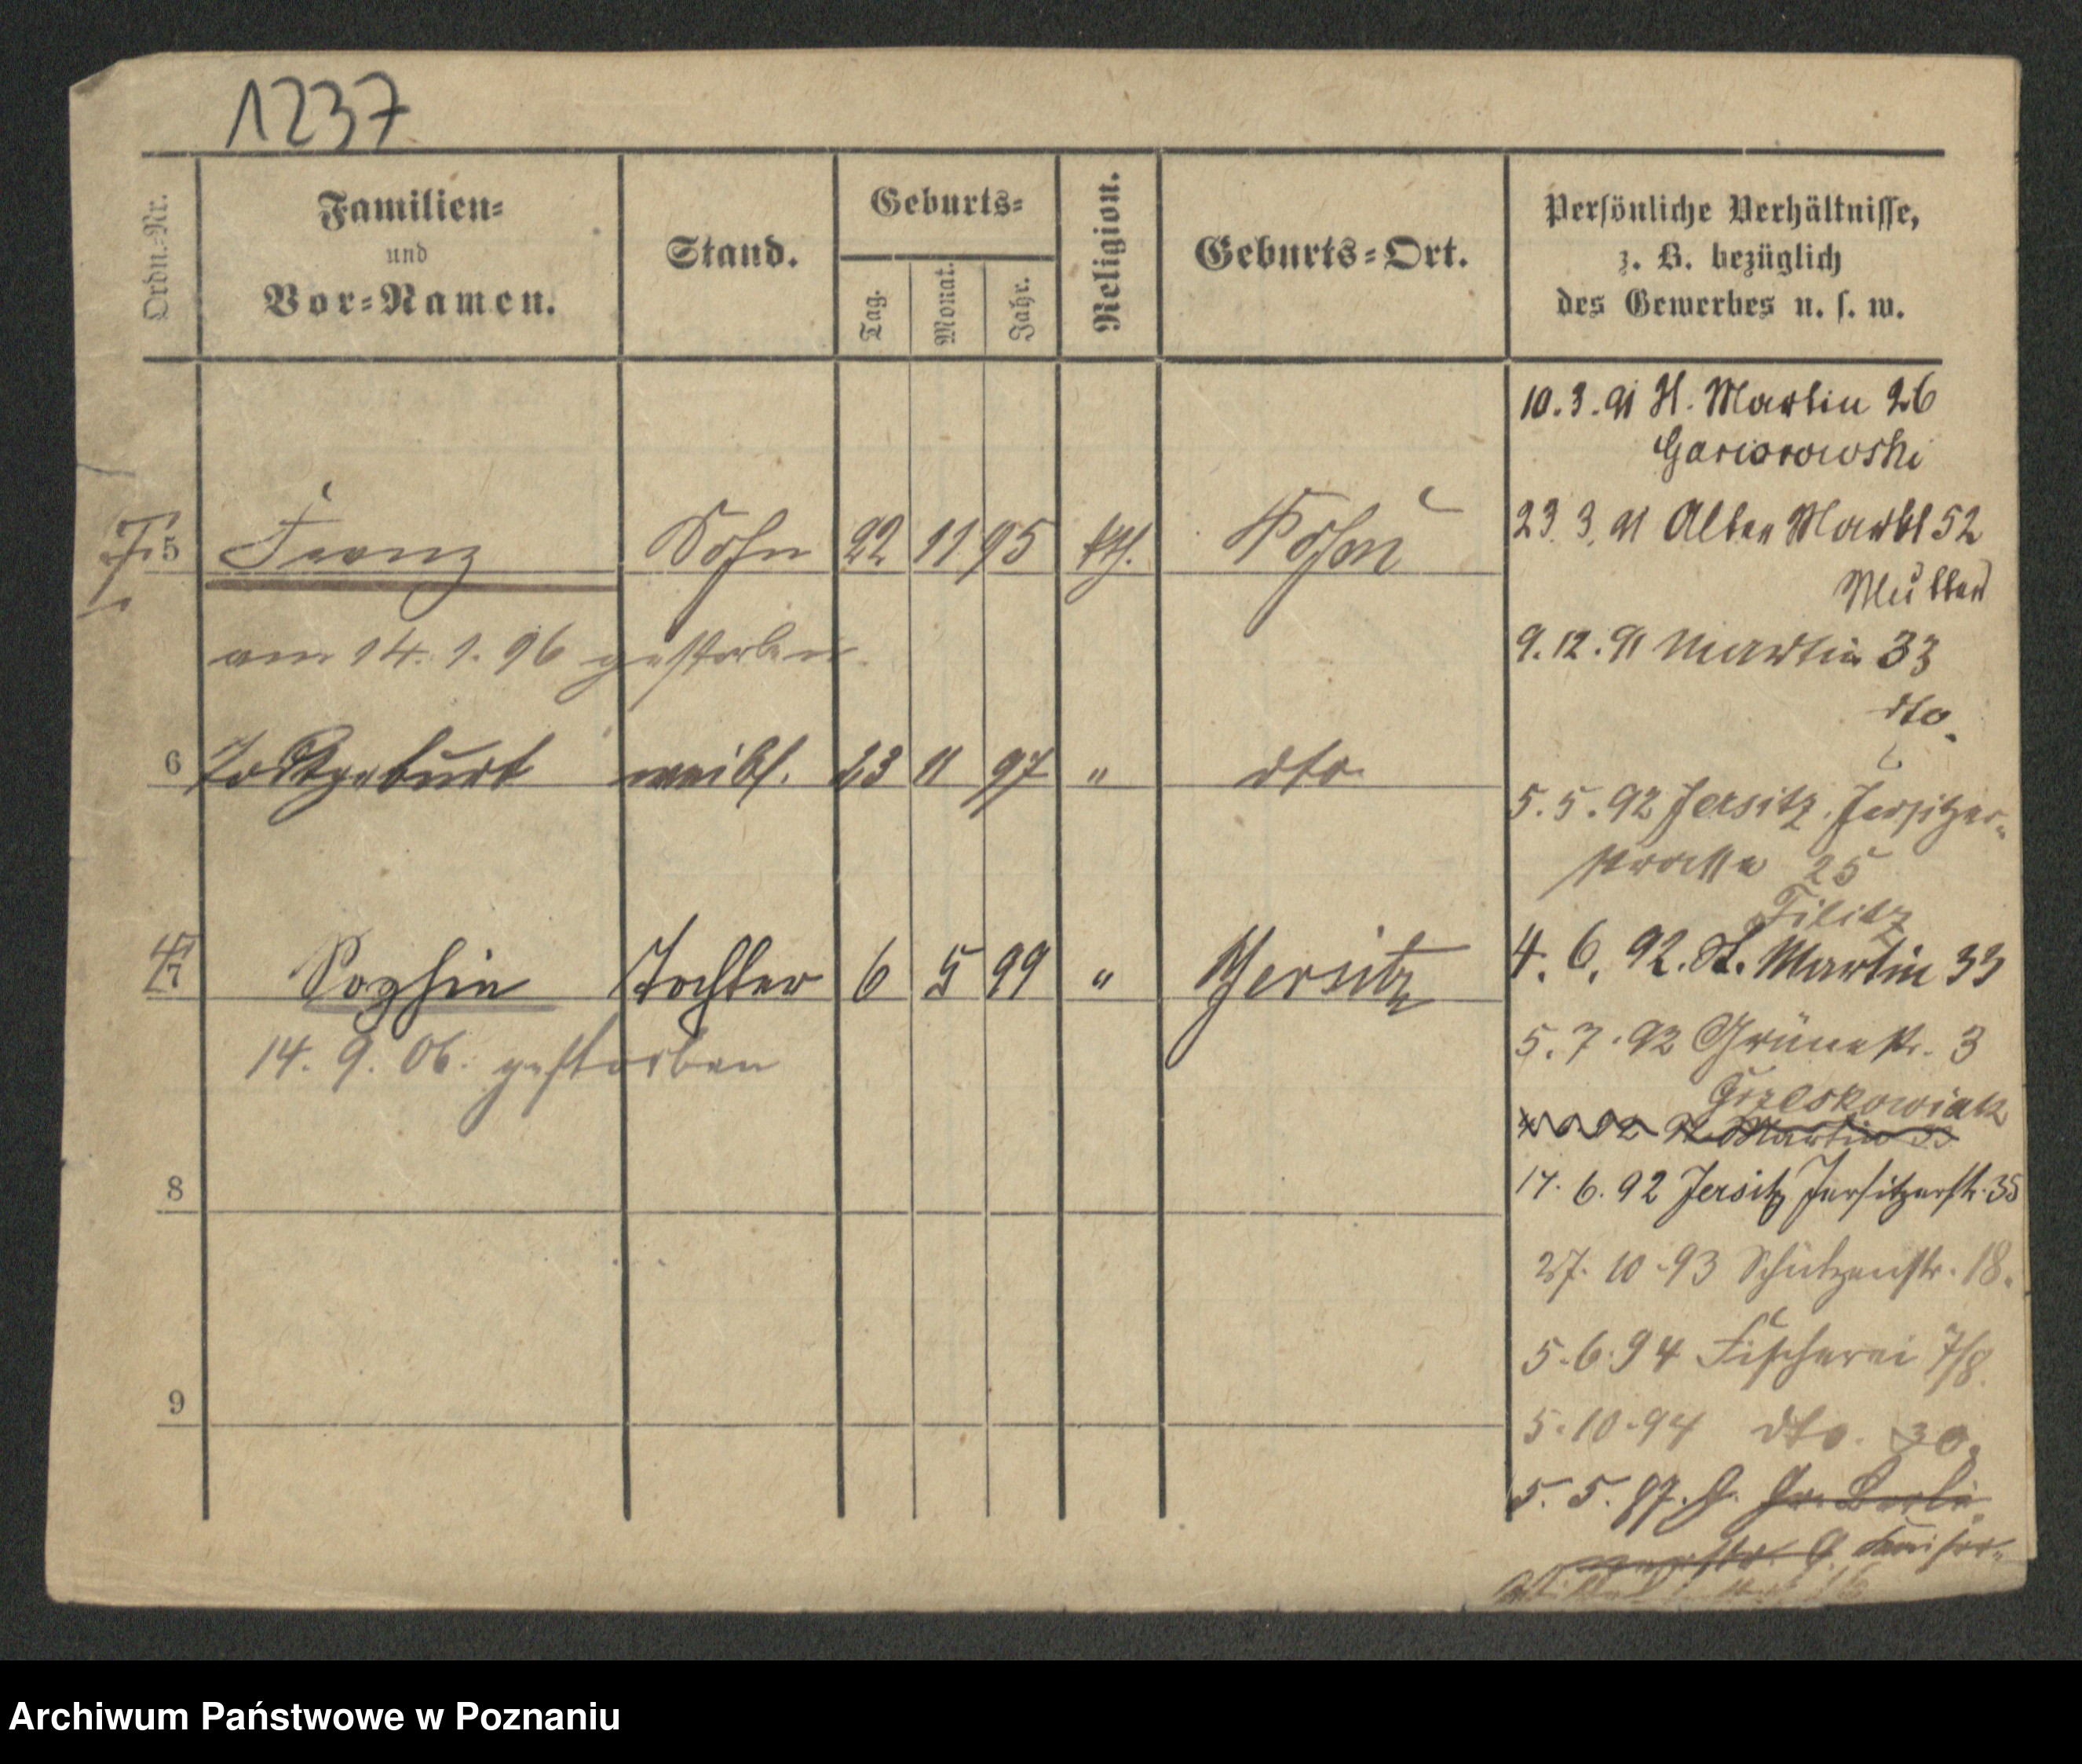 1237
Ordn.-Nr.
Familien-
und
Vor-Namen.
Stand.
Geburts-
Tag.
Monat.
Jahr.
Religion.
Geburts-Ort.
Persönliche Verhältnisse,
z. B. bezüglich
des Gewerbes u. s. w.
5 Franz Sohn 22 11 95 kth. Posen
am 14. 1. 96 gestorben.
6 Todtgeburt weibl. 23 11 97 " dto.
7 Sophie Tochter 6 5 99 " Jersitz
14. 9. 06. gestorben
8
9
10. 3. 91 St. Martin 26
23. 3. 91 Alter Markt 52
Müller
9. 12. 91 Martin 33
dto.
5. 5. 92 Jersitz, Jersitzer-
strasse 25
4. 6. 92. St. Martin 33
5. 7. 92 Grünestr. 3
Grzeskowiak
St. Martin 33
17. 6. 92 Jersitz Jersitzerstr. 35
27. 10. 93 Schützenstr. 18.
5. 6. 94 Fischerei 7/8.
5. 10. 94 dto. 30.
5. 5. 97. J. Gr. Berli
nerstr. 9 Kaiser-
Archiwum Państwowe w Poznaniu